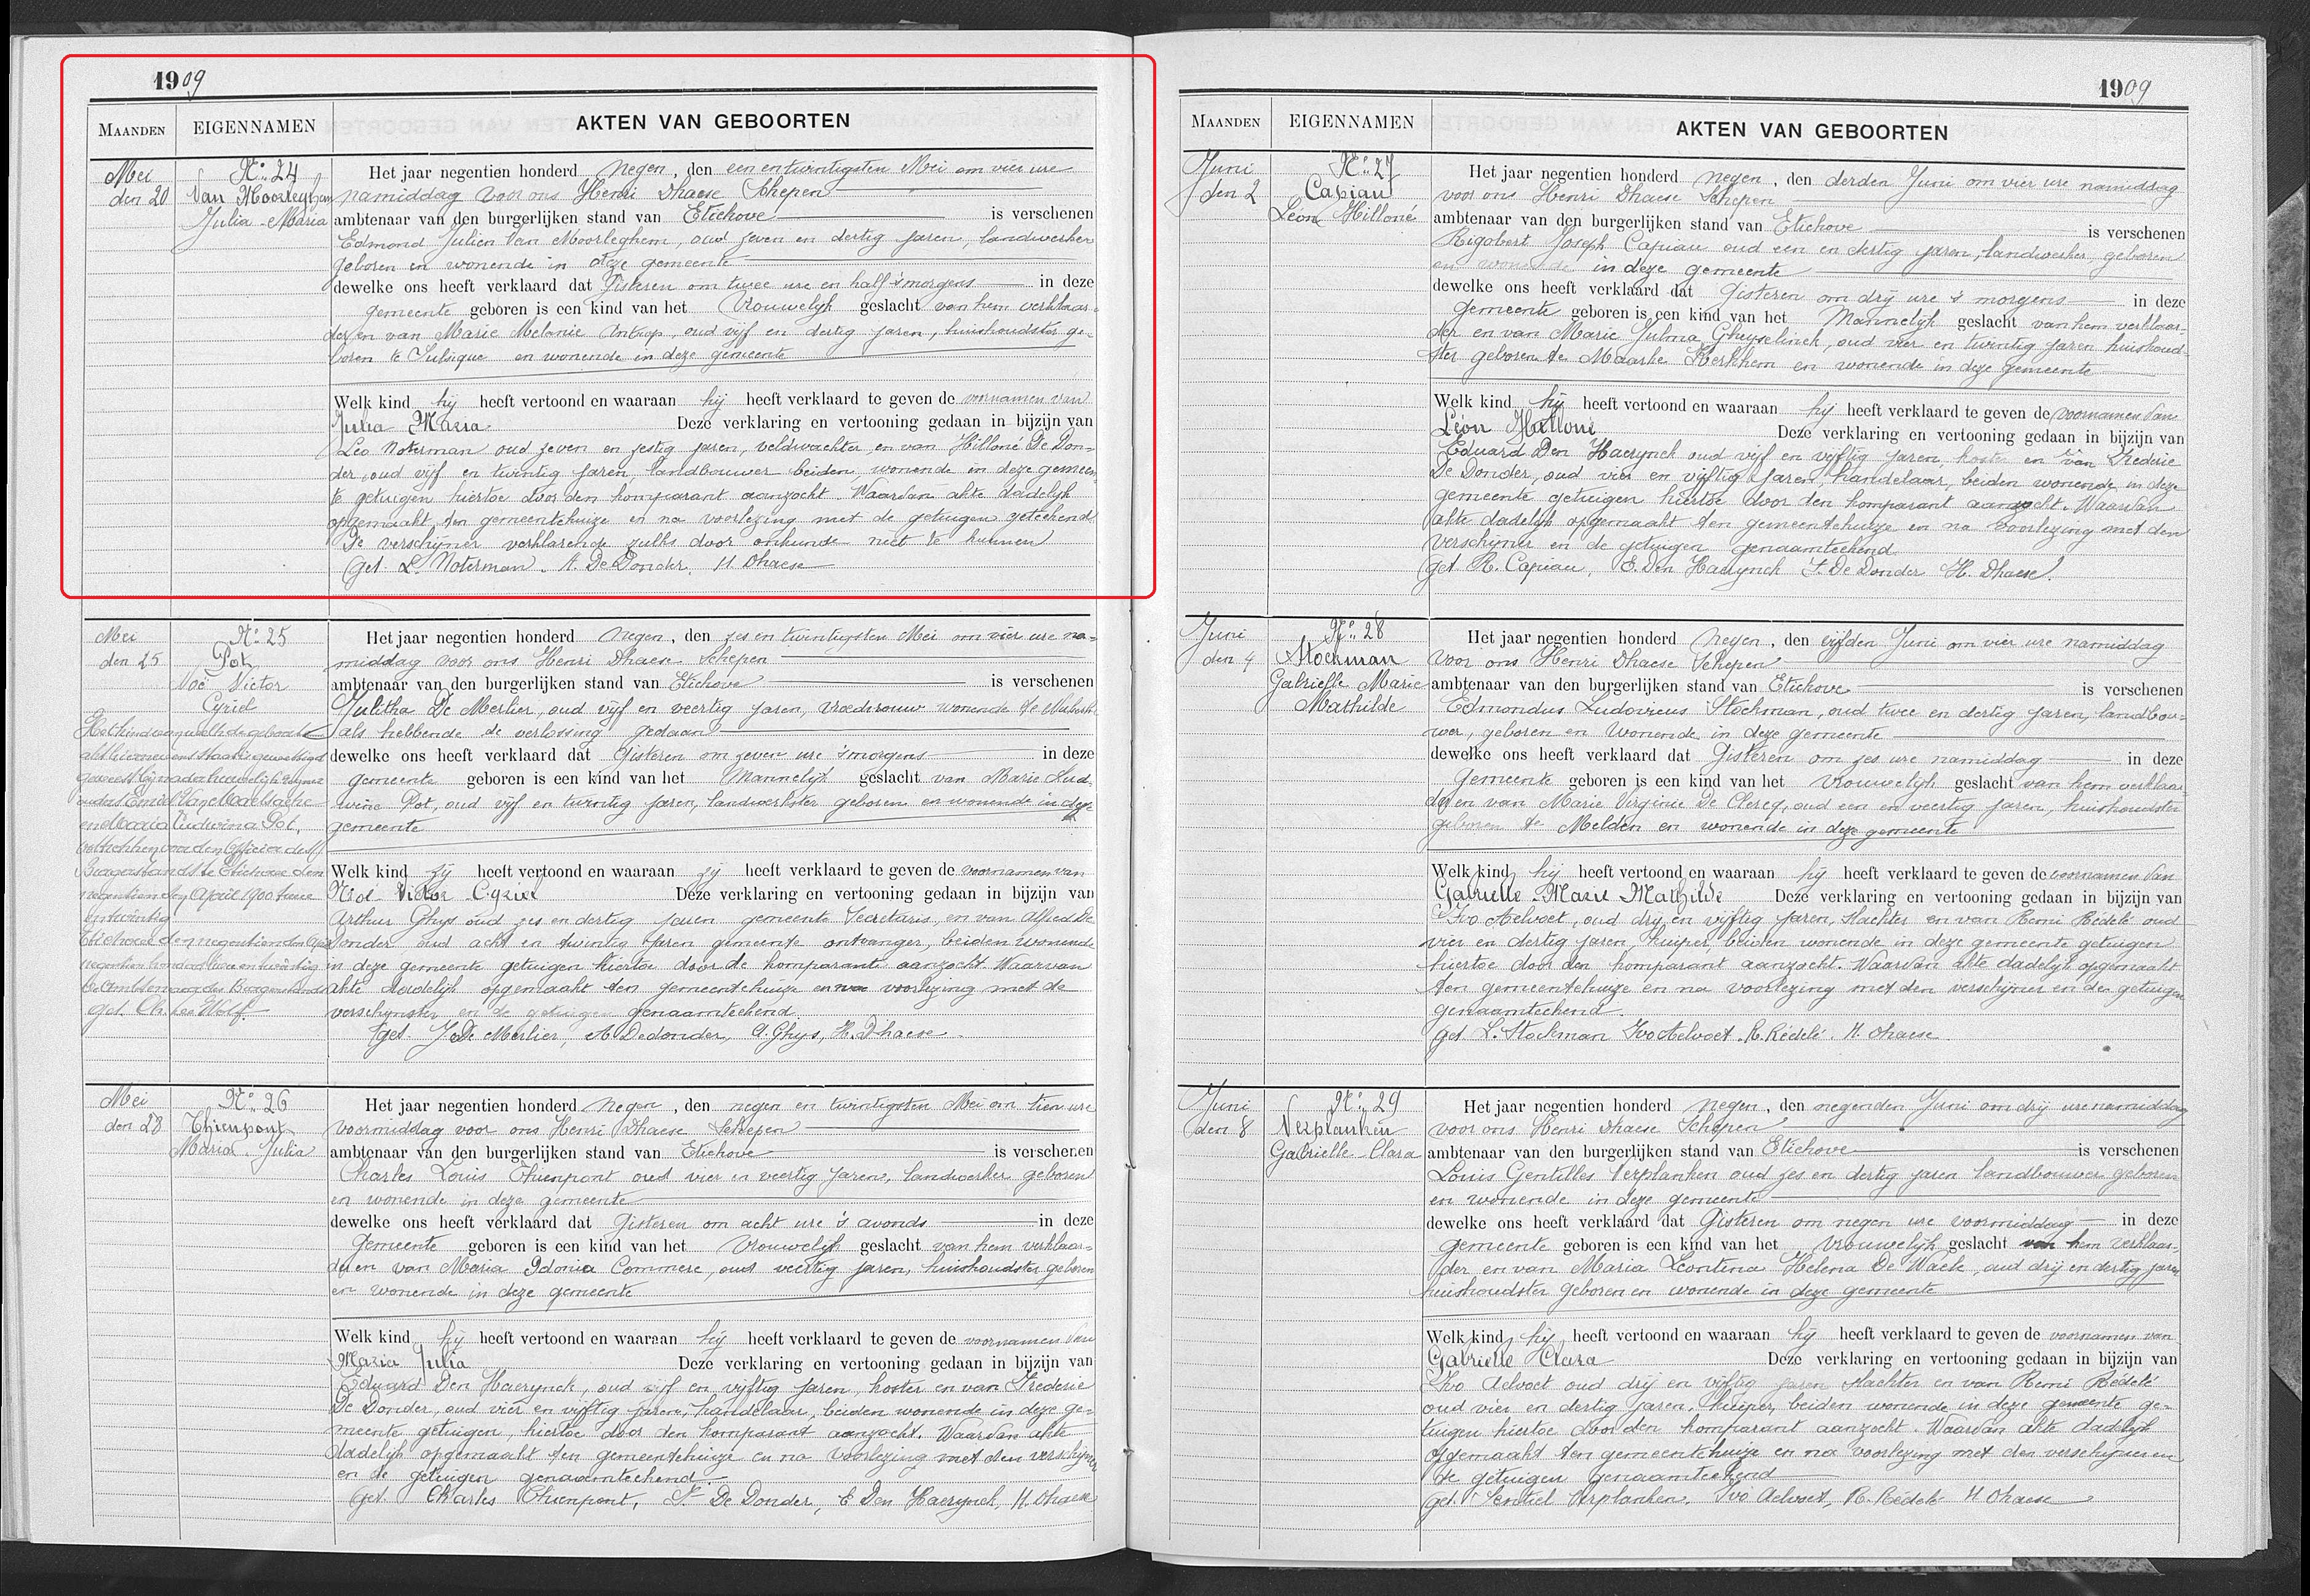 1909
MAANDEN EIGENNAMEN AKTEN VAN GEBOORTEN
Mei
den 20
No 24
Van Moorleghem
Julia Maria
Het jaar negentien honderd negen, den een en twintigsten Mei om vier ure
namiddag voor ons Henri Dhaese Schepen
ambtenaar van den burgerlijken stand van Etichove is verschenen
Edmond Julien Van Moorleghem, oud zeven en dertig jaren, landwerker
geboren en wonende in deze gemeente
dewelke ons heeft verklaard dat Gisteren om twee ure en half 's morgens in deze
gemeente geboren is een kind van het Vrouwelijk geslacht van hem verklaar-
der en van Marie Melanie Introp, oud vijf en dertig jaren, huishoudster ge-
boren te Sulsique en wonende in deze gemeente
Welk kind hij heeft vertoond en waaraan hij heeft verklaard te geven de voornamen van
Julia Maria Deze verklaring en vertooning gedaan in bijzijn van
Leo Noterman oud zeven en zestig jaren, veldwachter en van Hilloné De Don-
der, oud vijf en twintig jaren, landbouwer beiden wonende in deze gemeen-
te getuigen hiertoe door den komparant aanzocht. Waarvan akte dadelijk
opgemaakt ten gemeentehuize en na voorlezing met de getuigen geteekend
De verschijner verklarende zulks door onkunde niet te kunnen
get. L. Noterman. H. De Donder. H. Dhaese
Mei
den 25
No 25
Pot
Noë Victor
Cyriel
Het jaar negentien honderd negen, den zes en twintigsten Mei om vier ure na-
middag voor ons Henri Dhaese Schepen
ambtenaar van den burgerlijken stand van Etichove is verschenen
Julitha De Merlier, oud vijf en veertig jaren, vroedvrouw wonende te
als hebbende de verlossing gedaan
dewelke ons heeft verklaard dat Gisteren om zeven ure 's morgens in deze
gemeente geboren is een kind van het Mannelijk geslacht van Marie Lud-
wina Pot, oud vijf en twintig jaren, landwerkster geboren en wonende in deze
gemeente
Welk kind zij heeft vertoond en waaraan zij heeft verklaard te geven de voornamen van
Noë Victor Cyriel Deze verklaring en vertooning gedaan in bijzijn van
Arthur Ghys oud zes en dertig jaren gemeente Secretaris, en van Alfred De
Donder oud acht en twintig jaren gemeente ontvanger, beiden wonende
in deze gemeente getuigen hiertoe door de komparante aanzocht. Waarvan
akte dadelijk opgemaakt ten gemeentehuize en na voorlezing met de
verschijnster en de getuigen genaamteekend.
get. J. De Merlier, A Dedonder, A. Ghys, H. Dhaese
Het kind
en Maria Ludwina Pot,
get. Ch. De Wolf
Mei
den 28
No 26
Thienpont
Maria Julia
Het jaar negentien honderd negen, den negen en twintigsten Mei om tien ure
voormiddag voor ons Henri Dhaese Schepen
ambtenaar van den burgerlijken stand van Etichove is verschenen
Charles Louis Thienpont oud vier en veertig jaren, landwerker geboren
en wonende in deze gemeente
dewelke ons heeft verklaard dat Gisteren om acht ure 's avonds in deze
gemeente geboren is een kind van het Vrouwelijk geslacht van hem verklaar-
der en van Maria Idonia Commere, oud veertig jaren, huishoudster geboren
en wonende in deze gemeente
Welk kind hij heeft vertoond en waaraan hij heeft verklaard te geven de voornamen van
Maria Julia Deze verklaring en vertooning gedaan in bijzijn van
Eduard Den Haerynck, oud vijf en vijftig jaren, koster en van Frederic
De Donder, oud vier en vijftig jaren, handelaar, beiden wonende in deze ge-
meente getuigen, hiertoe door den komparant aanzocht. Waarvan akte
dadelijk opgemaakt ten gemeentehuize en na voorlezing met den verschijner
en de getuigen genaamteekend
get. Charles Thienpont, F De Donder, E Den Haerynck, H. Dhaese
1909
MAANDEN EIGENNAMEN AKTEN VAN GEBOORTEN
Juni
den 2
No 27
Capiau
Léon Hilloné
Het jaar negentien honderd negen, den derden Juni om vier ure namiddag
voor ons Henri Dhaese Schepen
ambtenaar van den burgerlijken stand van Etichove is verschenen
Rigobert Joseph Capiau oud een en dertig jaren, landwerker, geboren
en wonende in deze gemeente
dewelke ons heeft verklaard dat Gisteren om drij ure 's morgens in deze
gemeente geboren is een kind van het Mannelijk geslacht van hem verklaar-
der en van Marie Julma Ghyselinck, oud vier en twintig jaren huishoud-
ster geboren te Maarke Kerkhem en wonende in deze gemeente
Welk kind hij heeft vertoond en waaraan hij heeft verklaard te geven de voornamen van
Léon Hilloné Deze verklaring en vertooning gedaan in bijzijn van
Eduard Den Haerynck oud vijf en vijftig jaren, koster en van Frederic
De Donder, oud vier en vijftig jaren, handelaar, beiden wonende in deze
gemeente getuigen hiertoe door den komparant aanzocht. Waarvan
akte dadelijk opgemaakt ten gemeentehuize en na voorlezing met den
verschijner en de getuigen genaamteekend
get. R. Capiau, E. Den Haerynck F. De Donder H. Dhaese.
Juni
den 4
No 28
Stockman
Gabrielle Marie
Mathilde
Het jaar negentien honderd negen, den vijfden Juni om vier ure namiddag
voor ons Henri Dhaese Schepen
ambtenaar van den burgerlijken stand van Etichove is verschenen
Edmondus Ludovicus Stockman, oud twee en dertig jaren, landbou-
wer, geboren en wonende in deze gemeente
dewelke ons heeft verklaard dat Gisteren om zes ure namiddag in deze
gemeente geboren is een kind van het Vrouwelijk geslacht van hem verklaar-
der en van Marie Virginie De Clercq, oud een en veertig jaren, huishoudster
geboren te Melden en wonende in deze gemeente
Welk kind hij heeft vertoond en waaraan hij heeft verklaard te geven de voornamen van
Gabrielle Marie Mathilde Deze verklaring en vertooning gedaan in bijzijn van
Ivo Aelvoet, oud drij en vijftig jaren, slachter en van Remi Rédelé oud
vier en dertig jaren, kuiper, beiden wonende in deze gemeente getuigen
hiertoe door den komparant aanzocht. Waarvan akte dadelijk opgemaakt
ten gemeentehuize en na voorlezing met den verschijner en de getuigen
genaamteekend.
get L. Stockman Ivo Aelvoet. R. Rédelé. H. Dhaese.
Juni
den 8
No 29
Verplanken
Gabrielle Clara
Het jaar negentien honderd negen, den negenden Juni om drij ure namiddag
voor ons Henri Dhaese Schepen
ambtenaar van den burgerlijken stand van Etichove is verschenen
Louis Gentilles Verplanken oud zes en dertig jaren landbouwer geboren
en wonende in deze gemeente
dewelke ons heeft verklaard dat Gisteren om negen ure voormiddag in deze
gemeente geboren is een kind van het Vrouwelijk geslacht van hem verklaar-
der en van Maria Leontina Helena De Waele, oud drij en dertig jaren
huishoudster geboren en wonende in deze gemeente
Welk kind hij heeft vertoond en waaraan hij heeft verklaard te geven de voornamen van
Gabrielle Clara Deze verklaring en vertooning gedaan in bijzijn van
Ivo Aelvoet oud drij en vijftig jaren slachter en van Remi Rédelé
oud vier en dertig jaren, kuiper, beiden wonende in deze gemeente ge-
tuigen hiertoe door den komparant aanzocht. Waarvan akte dadelijk
opgemaakt ten gemeentehuize en na voorlezing met den verschijner en
de getuigen genaamteekend
get. Gentiel Verplanken. Ivo Aelvoet, R. Rédelé H Dhaese